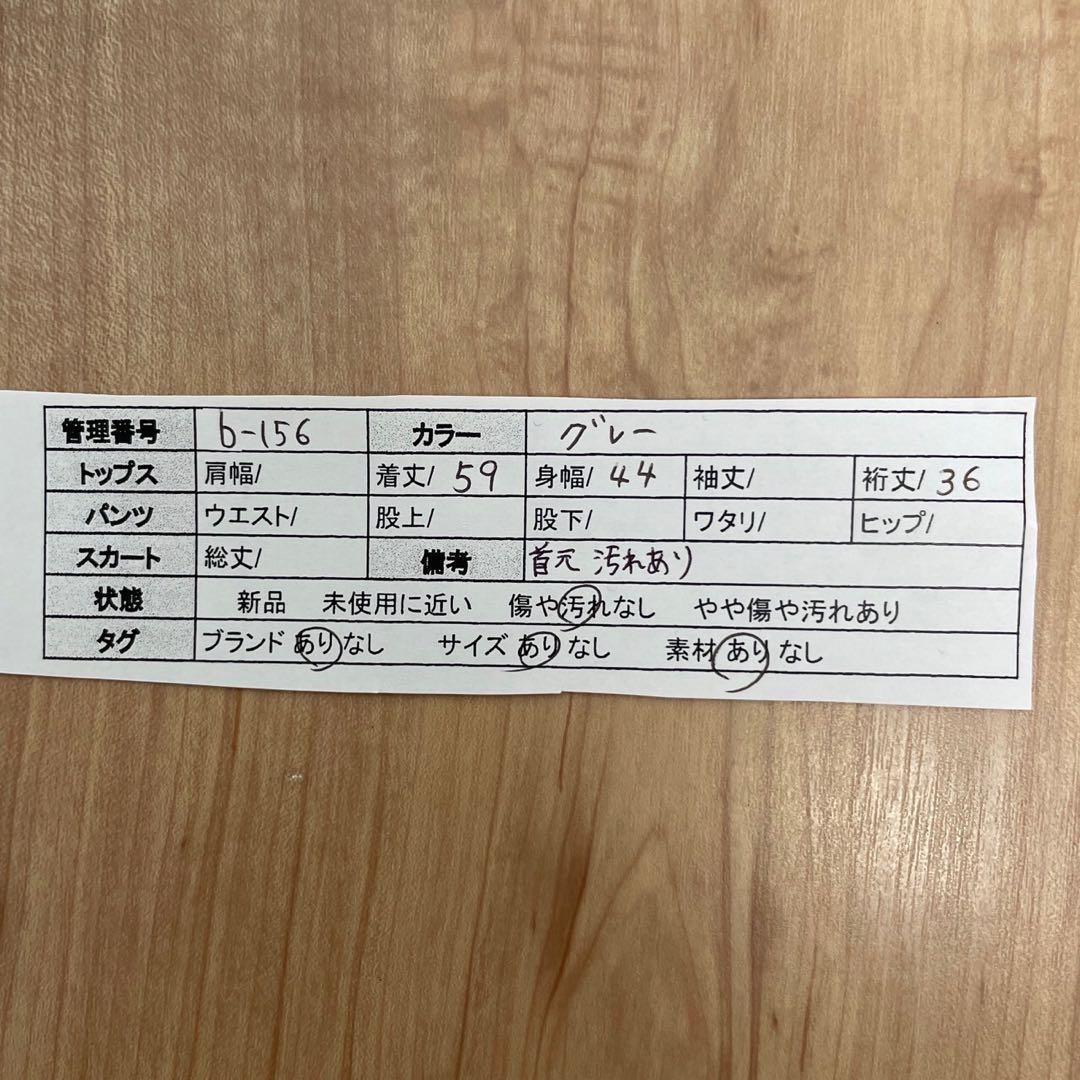 管理番号 b-156 カラー グレー
トップス 肩幅/ 着丈/ 59 身幅/ 44 袖丈/ 裄丈/ 36
パンツ ウエスト/ 股上/ 股下/ ワタリ/ ヒップ/
スカート 総丈/ 備考 首元 汚れあり
状態 新品 未使用に近い 傷や汚れなし やや傷や汚れあり
タグ ブランド ありなし サイズ ありなし 素材 ありなし